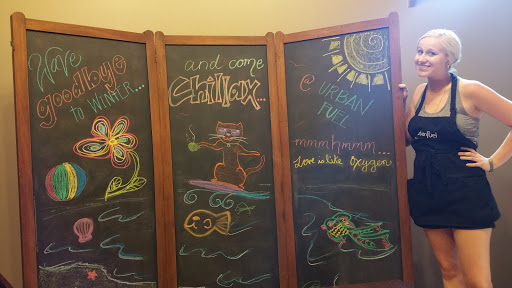 Wave
goodbye
to WINTER...
and come
Chillax...
@ URBAN
FUEL
mmmhmmm...
Love is like Oxygen